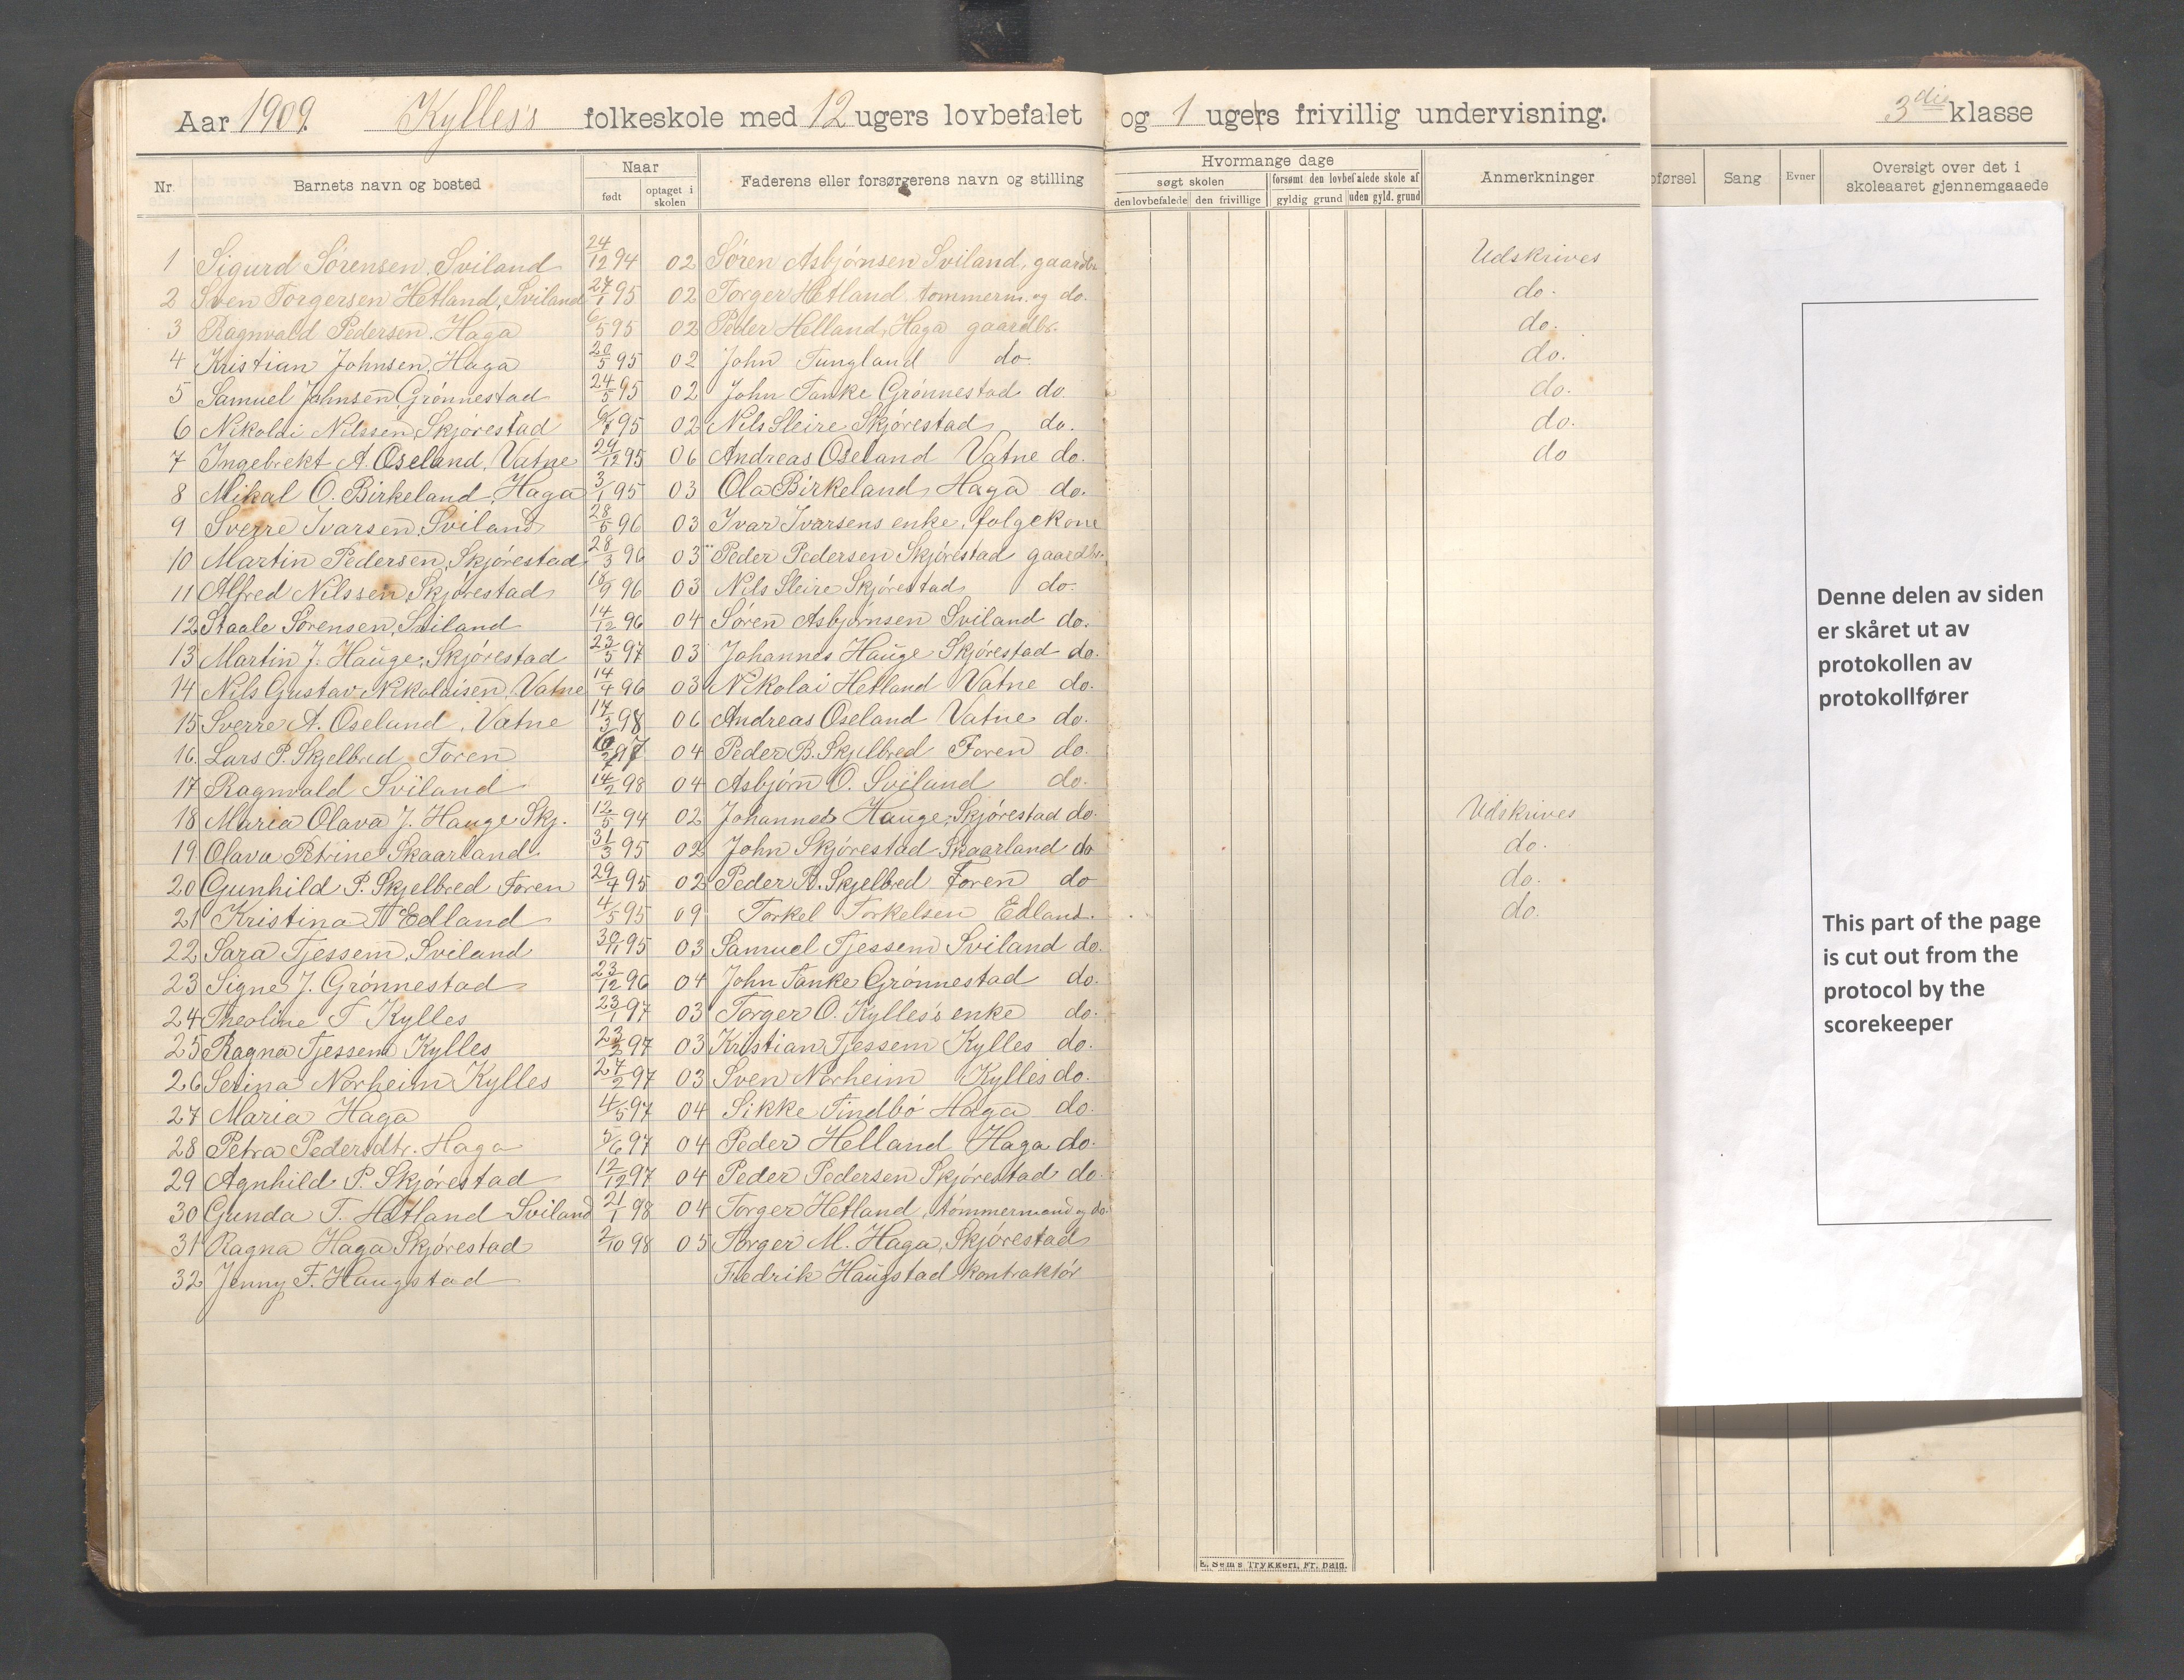 Aar 1909. Kylles's folkeskole med 12 ugers lovbefalet og 1 ugers frivillig undervisning. 3die klasse
Nr. Barnets navn og bosted Naar født optaget i skolen Faderens eller forsørgerens navn og stilling Hvormange dage søgt skolen den lovbefalede den frivillige forsømt den lovbefalede skole af gyldig grund uden gyld. grund Anmerkninger oførsel Sang Evner Oversigt over det i skoleaaret gjennemgaaede
1 Sigurd Sørensen, Sviland 24/12 94 02 Søren Asbjørnsen Sviland, gaardbr. Udskrives
2 Sven Torgersen Hetland, Sviland 27/1 95 02 Torger Hetland tømmerm. og do. do.
3 Ragnvald Pedersen, Haga 6/5 95 02 Peder Helland, Haga gaardbr. do.
4 Kristian Johnsen, Haga 20/5 95 02 John Tungland do. do.
5 Samuel Johnsen Grønnestad 24/5 95 02 John Tanke Grønnestad do. do.
6 Nikolai Nilssen, Skjørestad 95 02 Nils Sleire Skjørestad do. do.
7 Ingebrekt A. Oseland, Vatne 29/12 95 06 Andreas Oseland Vatne do. do
8 Mikal O. Birkeland, Haga 3/1 95 03 Ola Birkeland, Haga do.
9 Sverre Ivarsen, Sviland 28/5 96 03 Ivar Ivarsens enke, følgekone
10 Martin Pedersen, Skjørestad 28/3 96 03 Peder Pedersen Skjørestad gaardbr.
11 Alfred Nilssen Skjørestad 18/9 96 03 Nils Sleire Skjørestad do.
12 Staale Sørensen, Sviland 14/12 96 04 Søren Asbjørnsen Sviland do.
13 Martin J. Hauge, Skjørestad 23/5 97 03 Johannes Hauge Skjørestad do.
14 Nils Gustav Nikolaisen, Vatne 14/4 96 03 Nikolai Hetland Vatne do.
15 Sverre A. Oseland, Vatne 17/3 98 06 Andreas Oseland Vatne do.
16. Lars P. Skjelbred Foren 97 04 Peder B. Skjelbred Foren do.
17 Ragnvald Sviland 14/2 98 04 Asbjørn O. Sviland do.
18 Maria Olava J. Hauge, Skj. 12/5 94 02 Johannes Hauge, Skjørestad do. Udskrives
19 Olava Petrine Skaarland 31/3 95 02 John Skjørestad Skaarland do do.
20 Gunhild P. Skjelbred Foren 29/4 95 02 Peder B. Skjelbred Foren do do.
21 Kristina T Edland 4/5 95 09 Torkel Torkelsen Edland. do.
22 Sara Tjessem, Sviland 30/11 95 03 Samuel Tjessem Sviland do.
23 Signe J. Grønnestad 23/12 96 04 John Tanke Grønnestad do.
24 Theoline T Kylles 23/1 97 03 Torger O. Kylles's enke do.
25 Ragna Tjessem Kylles 23/2 97 03 Kristian Tjessem Kylles do.
26 Serina Norheim Kylles 27/2 97 03 Sven Norheim Kylles do.
27 Maria Haga 4/5 97 04 Sikke Tindbø Haga do.
28 Petra Pedersdtr. Haga 5/6 97 04 Peder Helland Haga do.
29 Agnhild P. Skjørestad 12/12 97 04 Peder Pedersen Skjørestad do
30 Gunda T. Hetland Sviland 21/1 98 04 Torger Hetland, tømmermand og do.
31 Ragna Haga Skjørestad 2/10 98 05 Torger M. Haga, Skjørestad
32 Jenny F. Haugstad Fredrik Haugstad kontraktør
E. Sem's Trykkeri, Fr. hald.
Denne delen av siden
er skåret ut av
protokollen av
protokollfører
This part of the page
is cut out from the
protocol by the
scorekeeper